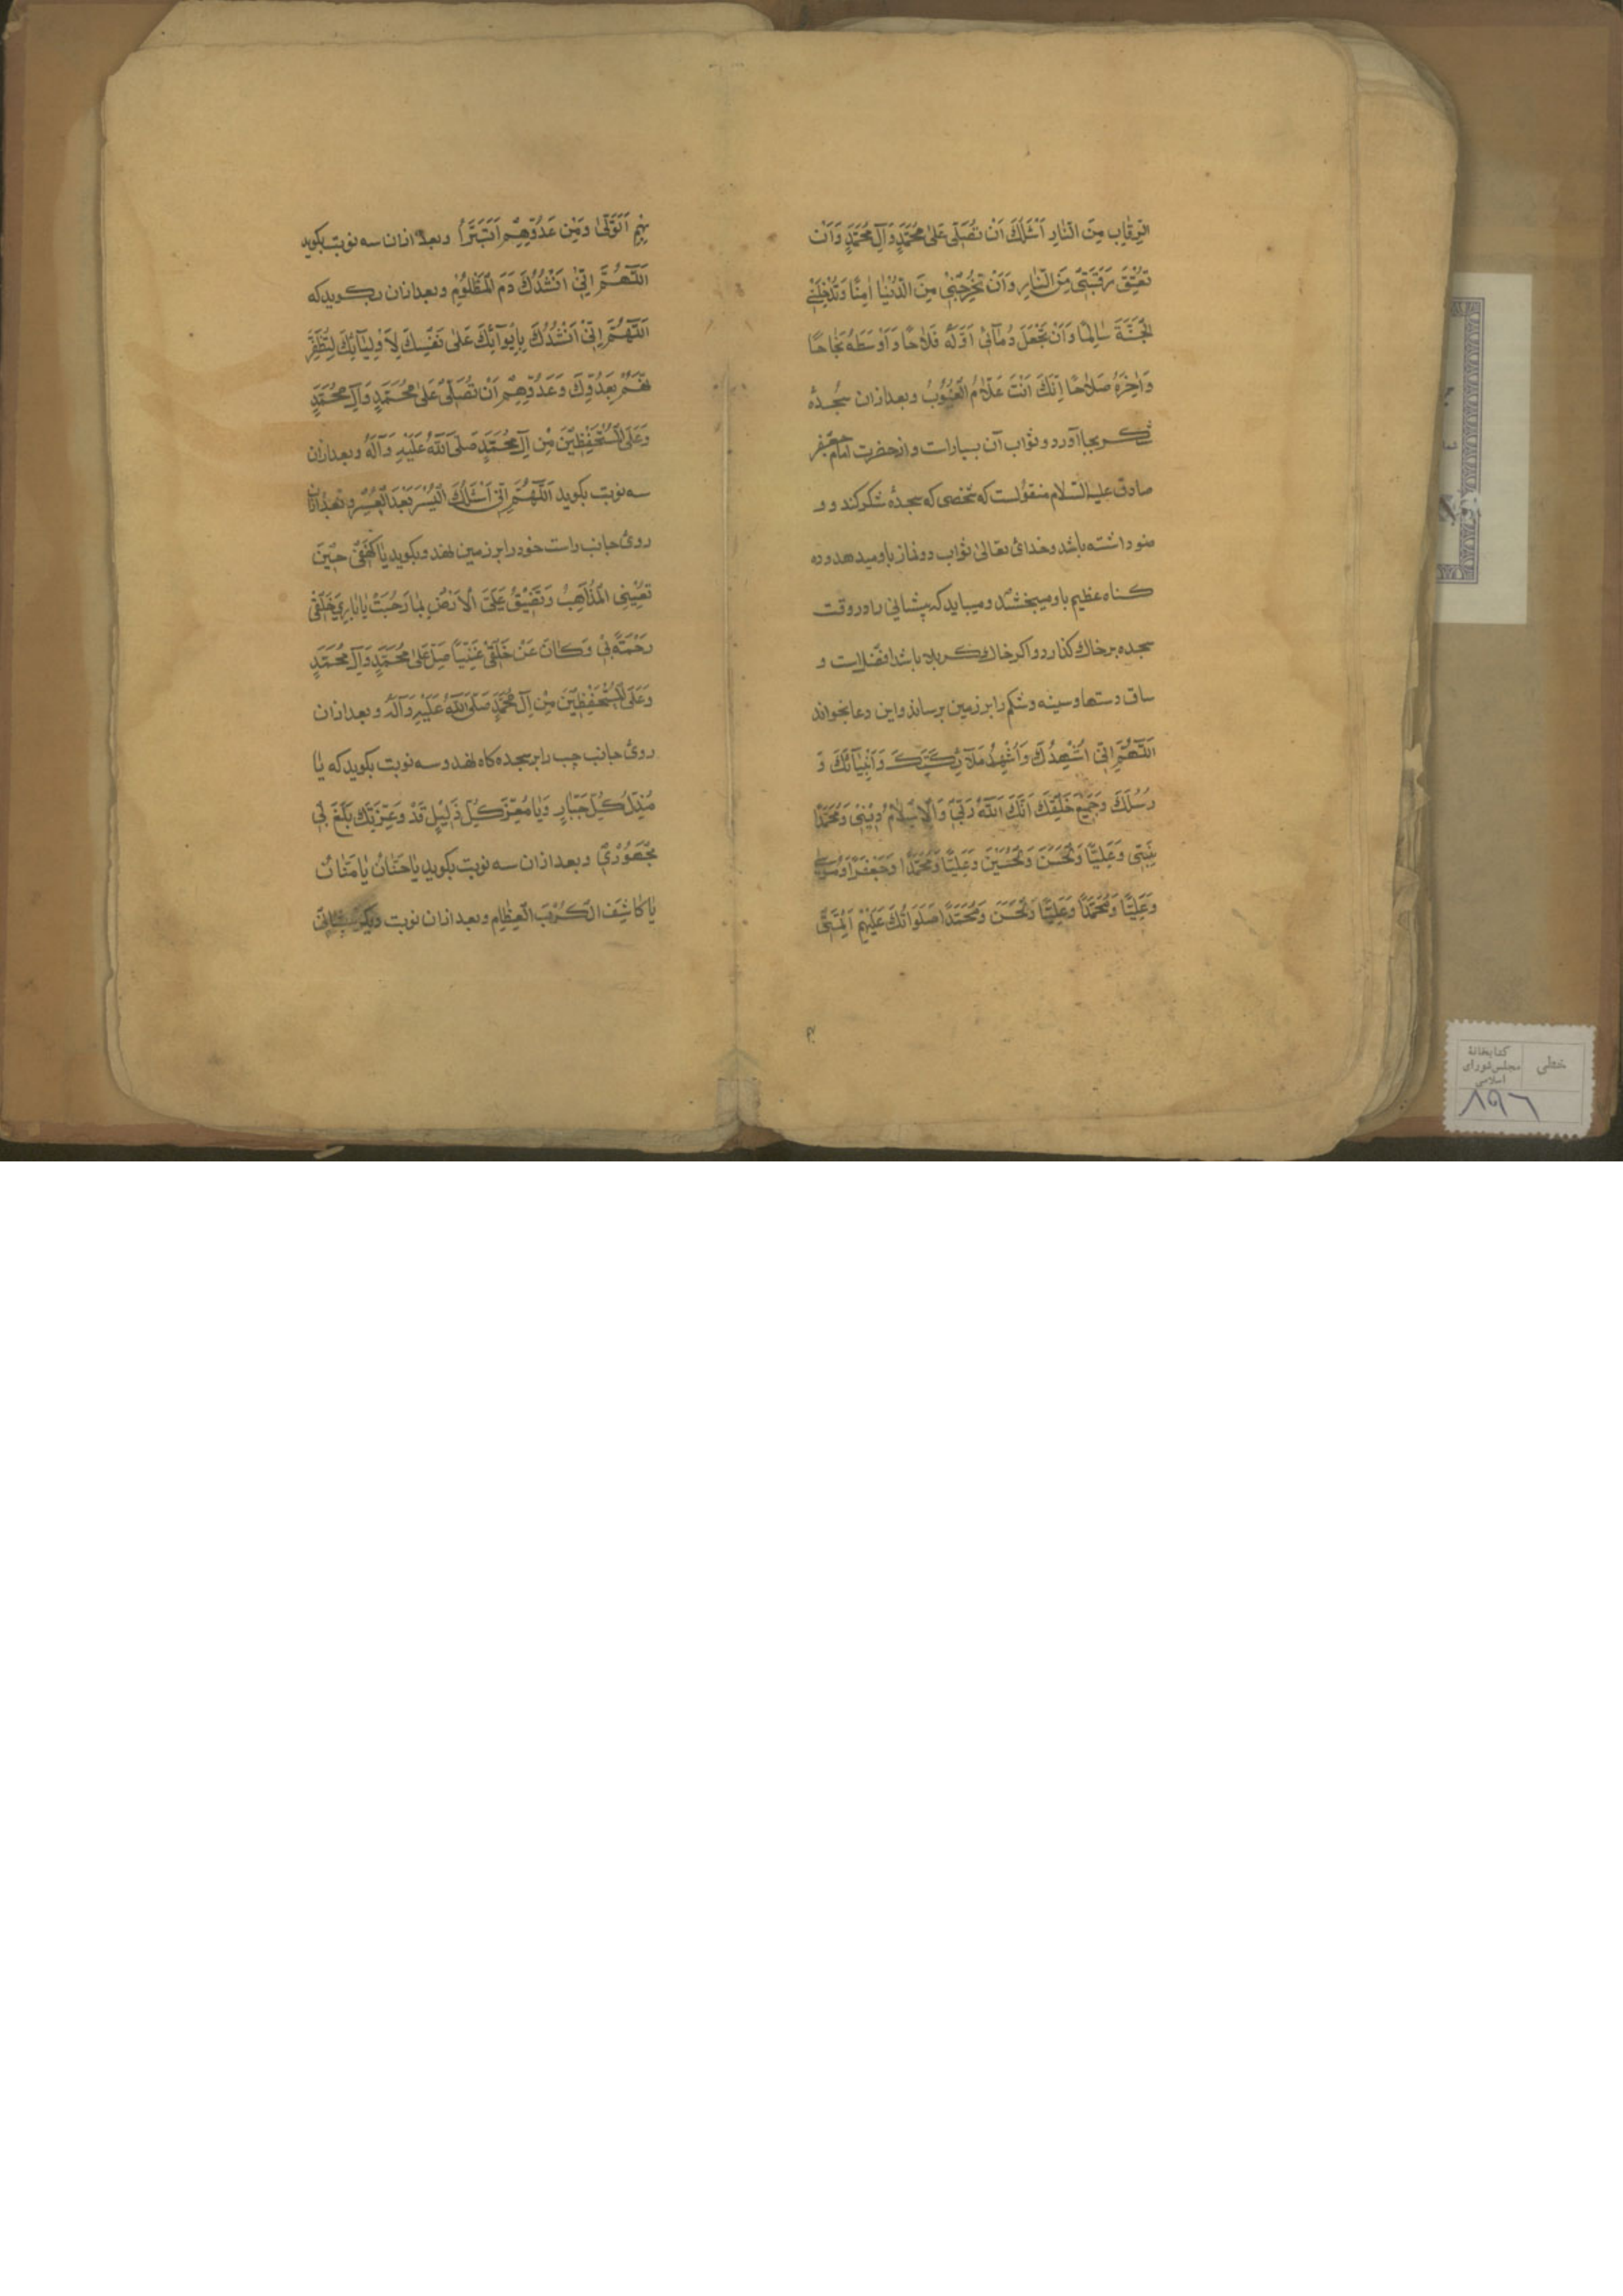 الرِّقَابِ مِنَ النَّارِ اَسْئَلُكَ اَنْ تُصَلِّيَ عَلٰى مُحَمَّدٍ وَآلِ مُحَمَّدٍ وَاَنْ
تُعْتِقَ رَقَبَتِي مِنَ النَّارِ وَاَنْ تُخْرِجَنِي مِنَ الدُّنْيَا اٰمِنًا وَتُدْخِلَنِي
الْجَنَّةَ سَالِمًا وَاَنْ تَجْعَلَ دُعَائِي اَوَّلَهُ فَلَاحًا وَاَوْسَطَهُ نَجَاحًا
وَاٰخِرَهُ صَلَاحًا اِنَّكَ اَنْتَ عَلَّامُ الْغُيُوبُ وبعد ازان سجده
شكر بجا آورد و ثواب آن بسیار است و از حضرت امام جعفر
صادق علیه السلام منقولست که شخصی که سجدهٔ شکر کند و و
ضو داشته باشد و خدای تعالی ثواب دو نماز باو میدهد و ده
کناه عظیم باو میبخشد و میباید که پیشانی را در وقت
سجده بر خاك کذارد و اکر خاك کربلا باشد افضلست و
ساق دستها و سینه و شکم را بر زمین برساند و این دعا بخواند
اَللّٰهُمَّ اِنِّي اُشْهِدُكَ وَاُشْهِدُ مَلَآئِكَتَكَ وَاَنْبِيَآئَكَ وَ
رُسُلَكَ وَجَمِيعَ خَلْقِكَ اَنَّكَ اَللّٰهُ رَبِّي وَالْاِسْلَامُ دِيْنِي وَمُحَمَّدًا
نَبِيِّي وَعَلِيًّا وَالْحَسَنَ وَالْحُسَيْنَ وَعَلِيًّا وَمُحَمَّدًا وَجَعْفَرًا وَمُوسٰى
وَعَلِيًّا وَمُحَمَّدًا وَعَلِيًّا وَالْحَسَنَ وَمُحَمَّدًا صَلَوَاتُكَ عَلَيْهِمْ اَئِمَّتِي
بِهِمْ اَتَوَلّٰى وَمِنْ عَدُوِّهِمْ اَتَبَرَّأُ وبعد ازان سه نوبت بکوید
اَللّٰهُمَّ اِنِّي اَنْشُدُكَ دَمَ الْمَظْلُومِ وبعد ازان بکوید که
اَللّٰهُمَّ اِنِّي اَنْشُدُكَ بِاِيْوَآئِكَ عَلٰى نَفْسِكَ لِاَوْلِيَآئِكَ لِتُظْفِرَ
نَّهُمْ بِعَدُوِّكَ وَعَدُوِّهِمْ اَنْ تُصَلِّيَ عَلٰى مُحَمَّدٍ وَآلِ مُحَمَّدٍ
وَعَلَى الْمُسْتَحْفِظِيْنَ مِنْ آلِ مُحَمَّدٍ صَلَّى اللّٰهُ عَلَيْهِ وَآلِهُ وبعد ازان
سه نوبت بکوید اَللّٰهُمَّ اِنِّي اَسْئَلُكَ الْيُسْرَ بَعْدَ الْعُسْرِ وبعد ازان
روی جانب راست خود را بر زمین نهد و بکوید يَا كَهْفِي حِيْنَ
تُعْيِينِي الْمَذَاهِبُ وَتَضِيْقُ عَلَيَّ الْاَرْضُ بِمَا رَحُبَتْ يَا بَارِيَ خَلْقِي
رَحْمَةً بِي وَكَانَ عَنْ خَلْقِي غَنِيًّا صَلِّ عَلٰى مُحَمَّدٍ وَآلِ مُحَمَّدٍ
وَعَلَى الْمُسْتَحْفِظِيْنَ مِنْ آلِ مُحَمَّدٍ صَلَّى اللّٰهُ عَلَيْهِ وَآلِهُ وبعد ازان
روی جانب چپ را بر سجده کاه نهد و سه نوبت بکوید که يَا
مُذِلَّ كُلِّ جَبَّارٍ وَيَا مُعِزَّ كُلِّ ذَلِيْلٍ قَدْ وَعِزَّتِكَ بَلَغَ بِي
مَجْهُودِي وبعد ازان سه نوبت بکوید يَا حَنَّانُ يَا مَنَّانُ
يَا كَاشِفَ الْكُرَبِ الْعِظَامِ وبعد ازان نوبت دیکر
خطی
کتابخانهٔ
مجلس شورای
اسلامی
۸۹۶